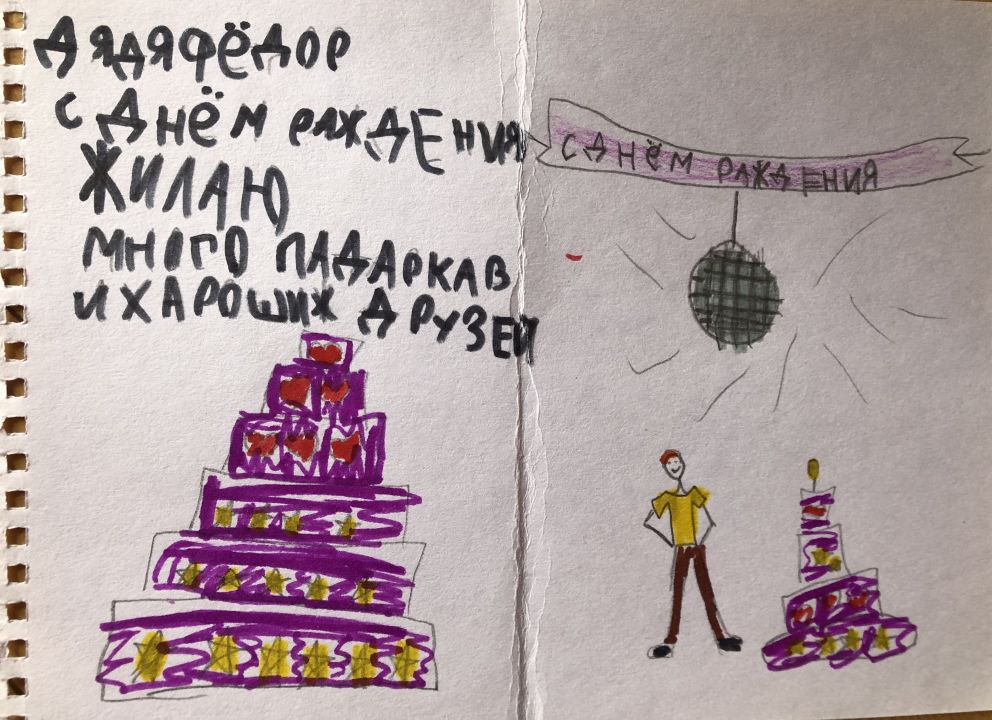 ДЯДЯФЁДОР
С ДНЁМ РАЖДЕНИЯ
ЖИЛАЮ
МНОГО ПАДАРКАВ
И ХАРОШИХ ДРУЗЕЙ
С ДНЁМ РАЖДЕНИЯ